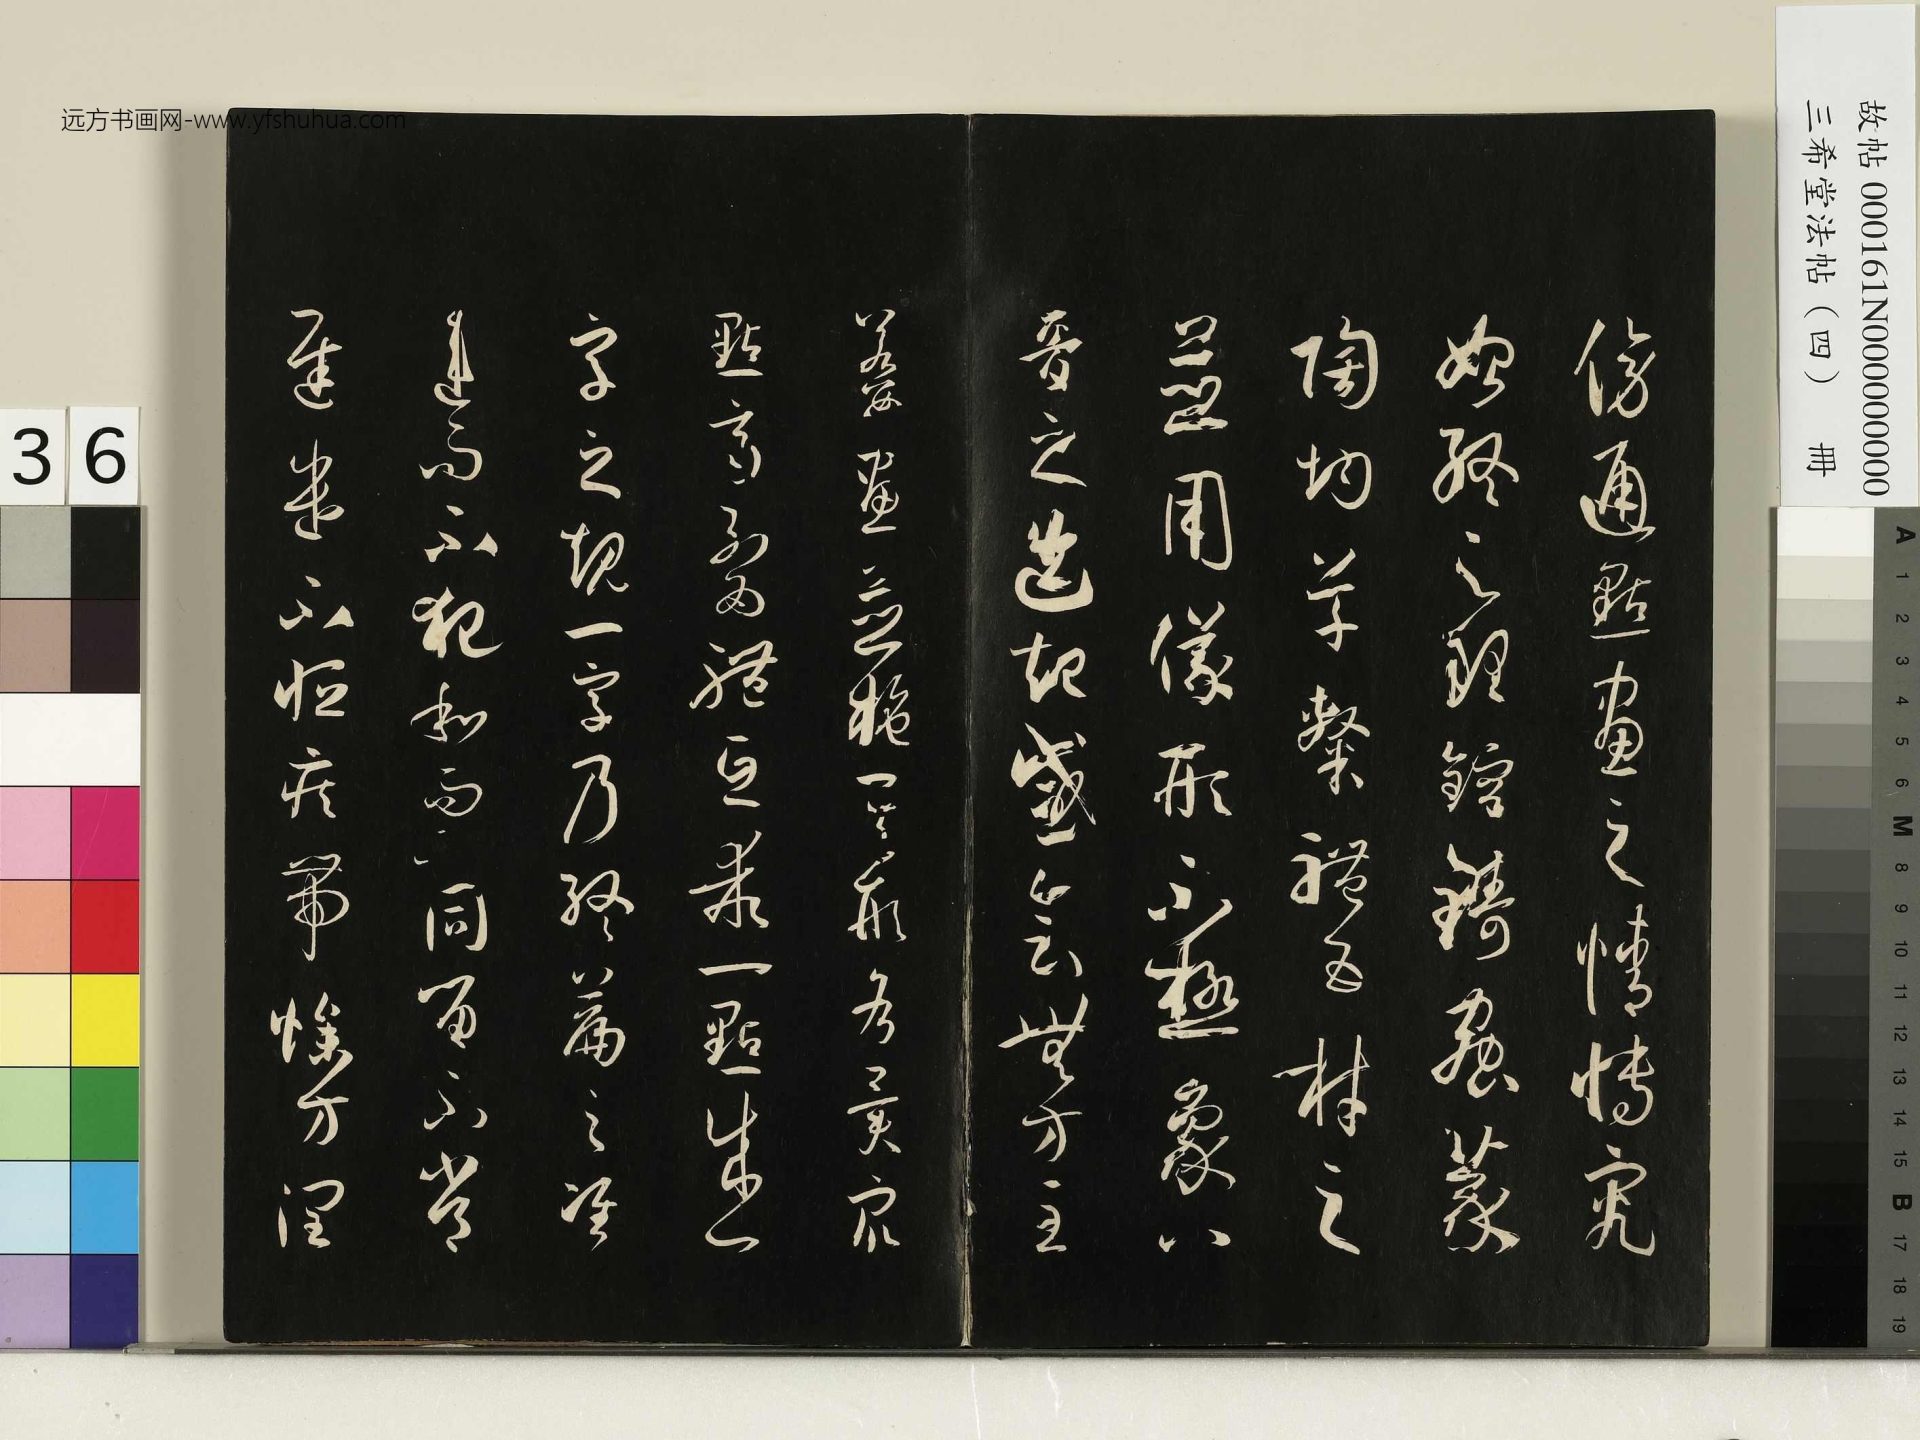 傍通點畫之情博究
始終之理鎔鑄蟲篆
陶均草隸體五材之
並用儀形不極象八
音之迭起感會無方至
若數畫並施其形各異衆
點齊列為體互乖一點成一
字之規一字乃終篇之準
違而不犯和而不同留不常
遲遣不恒疾帶燥方潤
故帖 000161N000000000
三希堂法帖(四) 冊
远方书画网-www.yfshuhua.com
36
A 1 2 3 4 5 6 M 8 9 10 11 12 13 14 15 B 17 18 19